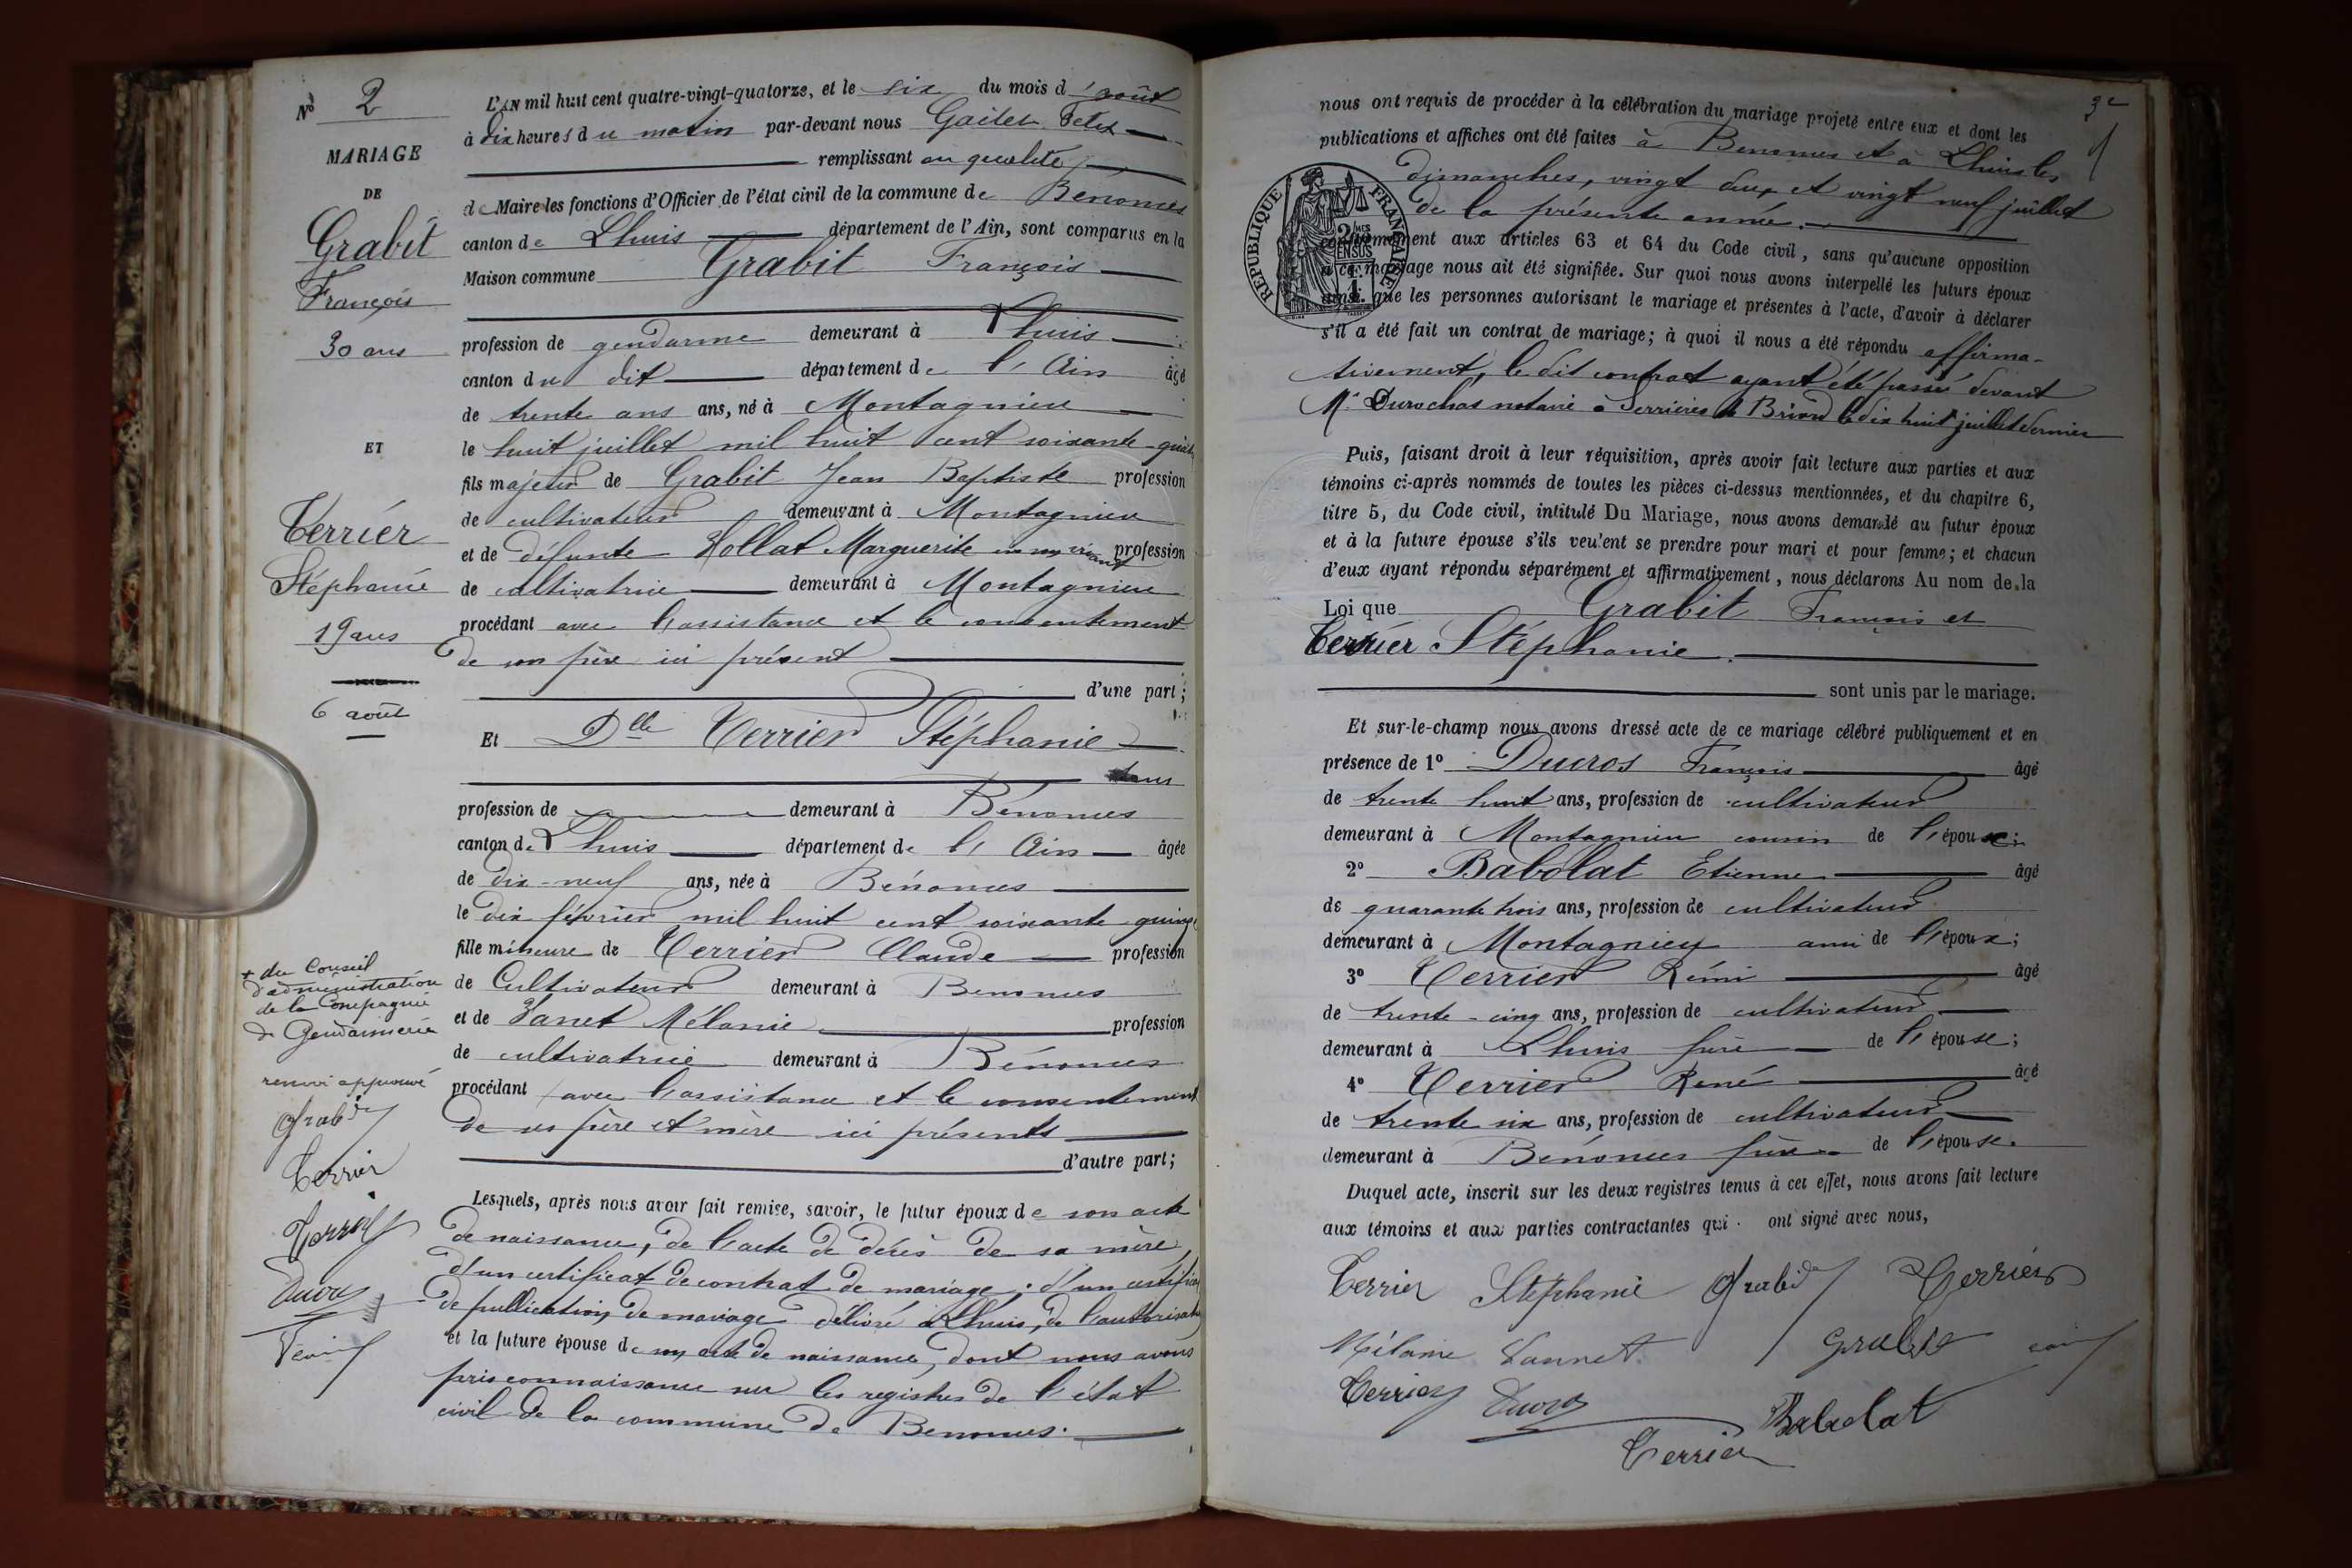 Nº 2
MARIAGE
DE
Grabit
François
30 ans
ET
Terrier
Stéphanie
19 ans
6 août
+ du Conseil
d'administration
de la Compagnie
de Gendarmerie
renvoi approuvé
Grabit
Terrier
Ducros
L'AN mil huit cent quatre-vingt-quatorze, et le six du mois d'août
à dix heures du matin par-devant nous
remplissant en qualité
de Maire les fonctions d'Officier de l'état civil de la commune de Bénonces
canton de Lhuis département de l'Ain, sont comparus en la
Maison commune Grabit François
profession de gendarme demeurant à Lhuis
canton du dit département de l'Ain âgé
de trente ans ans, né à Montagnieu
le huit juillet mil huit cent soixante-quatre
fils majeur de Grabit Jean Baptiste profession
de cultivateur demeurant à Montagnieu
et de défunte Marguerite en son vivant profession
de cultivatrice demeurant à Montagnieu
procédant avec l'assistance et le consentement
de son père ici présent
d'une part;
Et Dlle Terrier Stéphanie
sans
profession de demeurant à Bénonces
canton de Lhuis département de l'Ain âgée
de dix-neuf ans, née à Bénonces
le dix février mil huit cent soixante quinze
fille mineure de Terrier Claude profession
de Cultivateur demeurant à Benonces
et de Vanet Mélanie profession
de cultivatrice demeurant à Bénonces
procédant avec l'assistance et le consentement
de ses père et mère ici présents
d'autre part;
Lesquels, après nous avoir fait remise, savoir, le futur époux de son acte
de naissance, de l'acte de décès de sa mère,
d'un certificat de contrat de mariage; d'un certificat
de publication de mariage délivré à Lhuis, de l'autorisation
et la future épouse de son acte de naissance, dont nous avons
pris connaissance sur les registres de l'état
civil de la commune de Benonces.
nous ont requis de procéder à la célébration du mariage projeté entre eux et dont les
publications et affiches ont été faites à Benonces et à Lhuis les
dimanches, vingt deux et vingt neuf juillet
de la présente année.
conformément aux articles 63 et 64 du Code civil, sans qu'aucune opposition
à ce mariage nous ait été signifiée. Sur quoi nous avons interpellé les futurs époux
ainsi que les personnes autorisant le mariage et présentes à l'acte, d'avoir à déclarer
s'il a été fait un contrat de mariage; à quoi il nous a été répondu affirma-
tivement, le dit contrat ayant été passé devant
Me Durochat notaire à Serrières de Briord le dix huit juillet dernier
REPUBLIQUE FRANÇAISE
Puis, faisant droit à leur réquisition, après avoir fait lecture aux parties et aux
témoins ci-après nommés de toutes les pièces ci-dessus mentionnées, et du chapitre 6,
titre 5, du Code civil, intitulé Du Mariage, nous avons demandé au futur époux
et à la future épouse s'ils veulent se prendre pour mari et pour femme; et chacun
d'eux ayant répondu séparément et affirmativement, nous déclarons Au nom de la
Loi que Grabit François et
Terrier Stéphanie.
sont unis par le mariage.
Et sur-le-champ nous avons dressé acte de ce mariage célébré publiquement et en
présence de 1º Ducros François âgé
de trente huit ans, profession de cultivateur
demeurant à Montagnieu cousin de l'épouse;
2º Babolat Etienne âgé
de quarante trois ans, profession de cultivateur
demeurant à Montagnieu ami de l'époux;
3º Terrier Rémi âgé
de trente-cinq ans, profession de cultivateur
demeurant à Lhuis frère de l'épouse;
4º Terrier René âgé
de trente six ans, profession de cultivateur
demeurant à Bénonces frère de l'épouse.
Duquel acte, inscrit sur les deux registres tenus à cet effet, nous avons fait lecture
aux témoins et aux parties contractantes qui ont signé avec nous,
Terrier Stéphanie Grabit Terrier
Mélanie Vannet Grabit
Terrier Ducros Babolat
Terrier